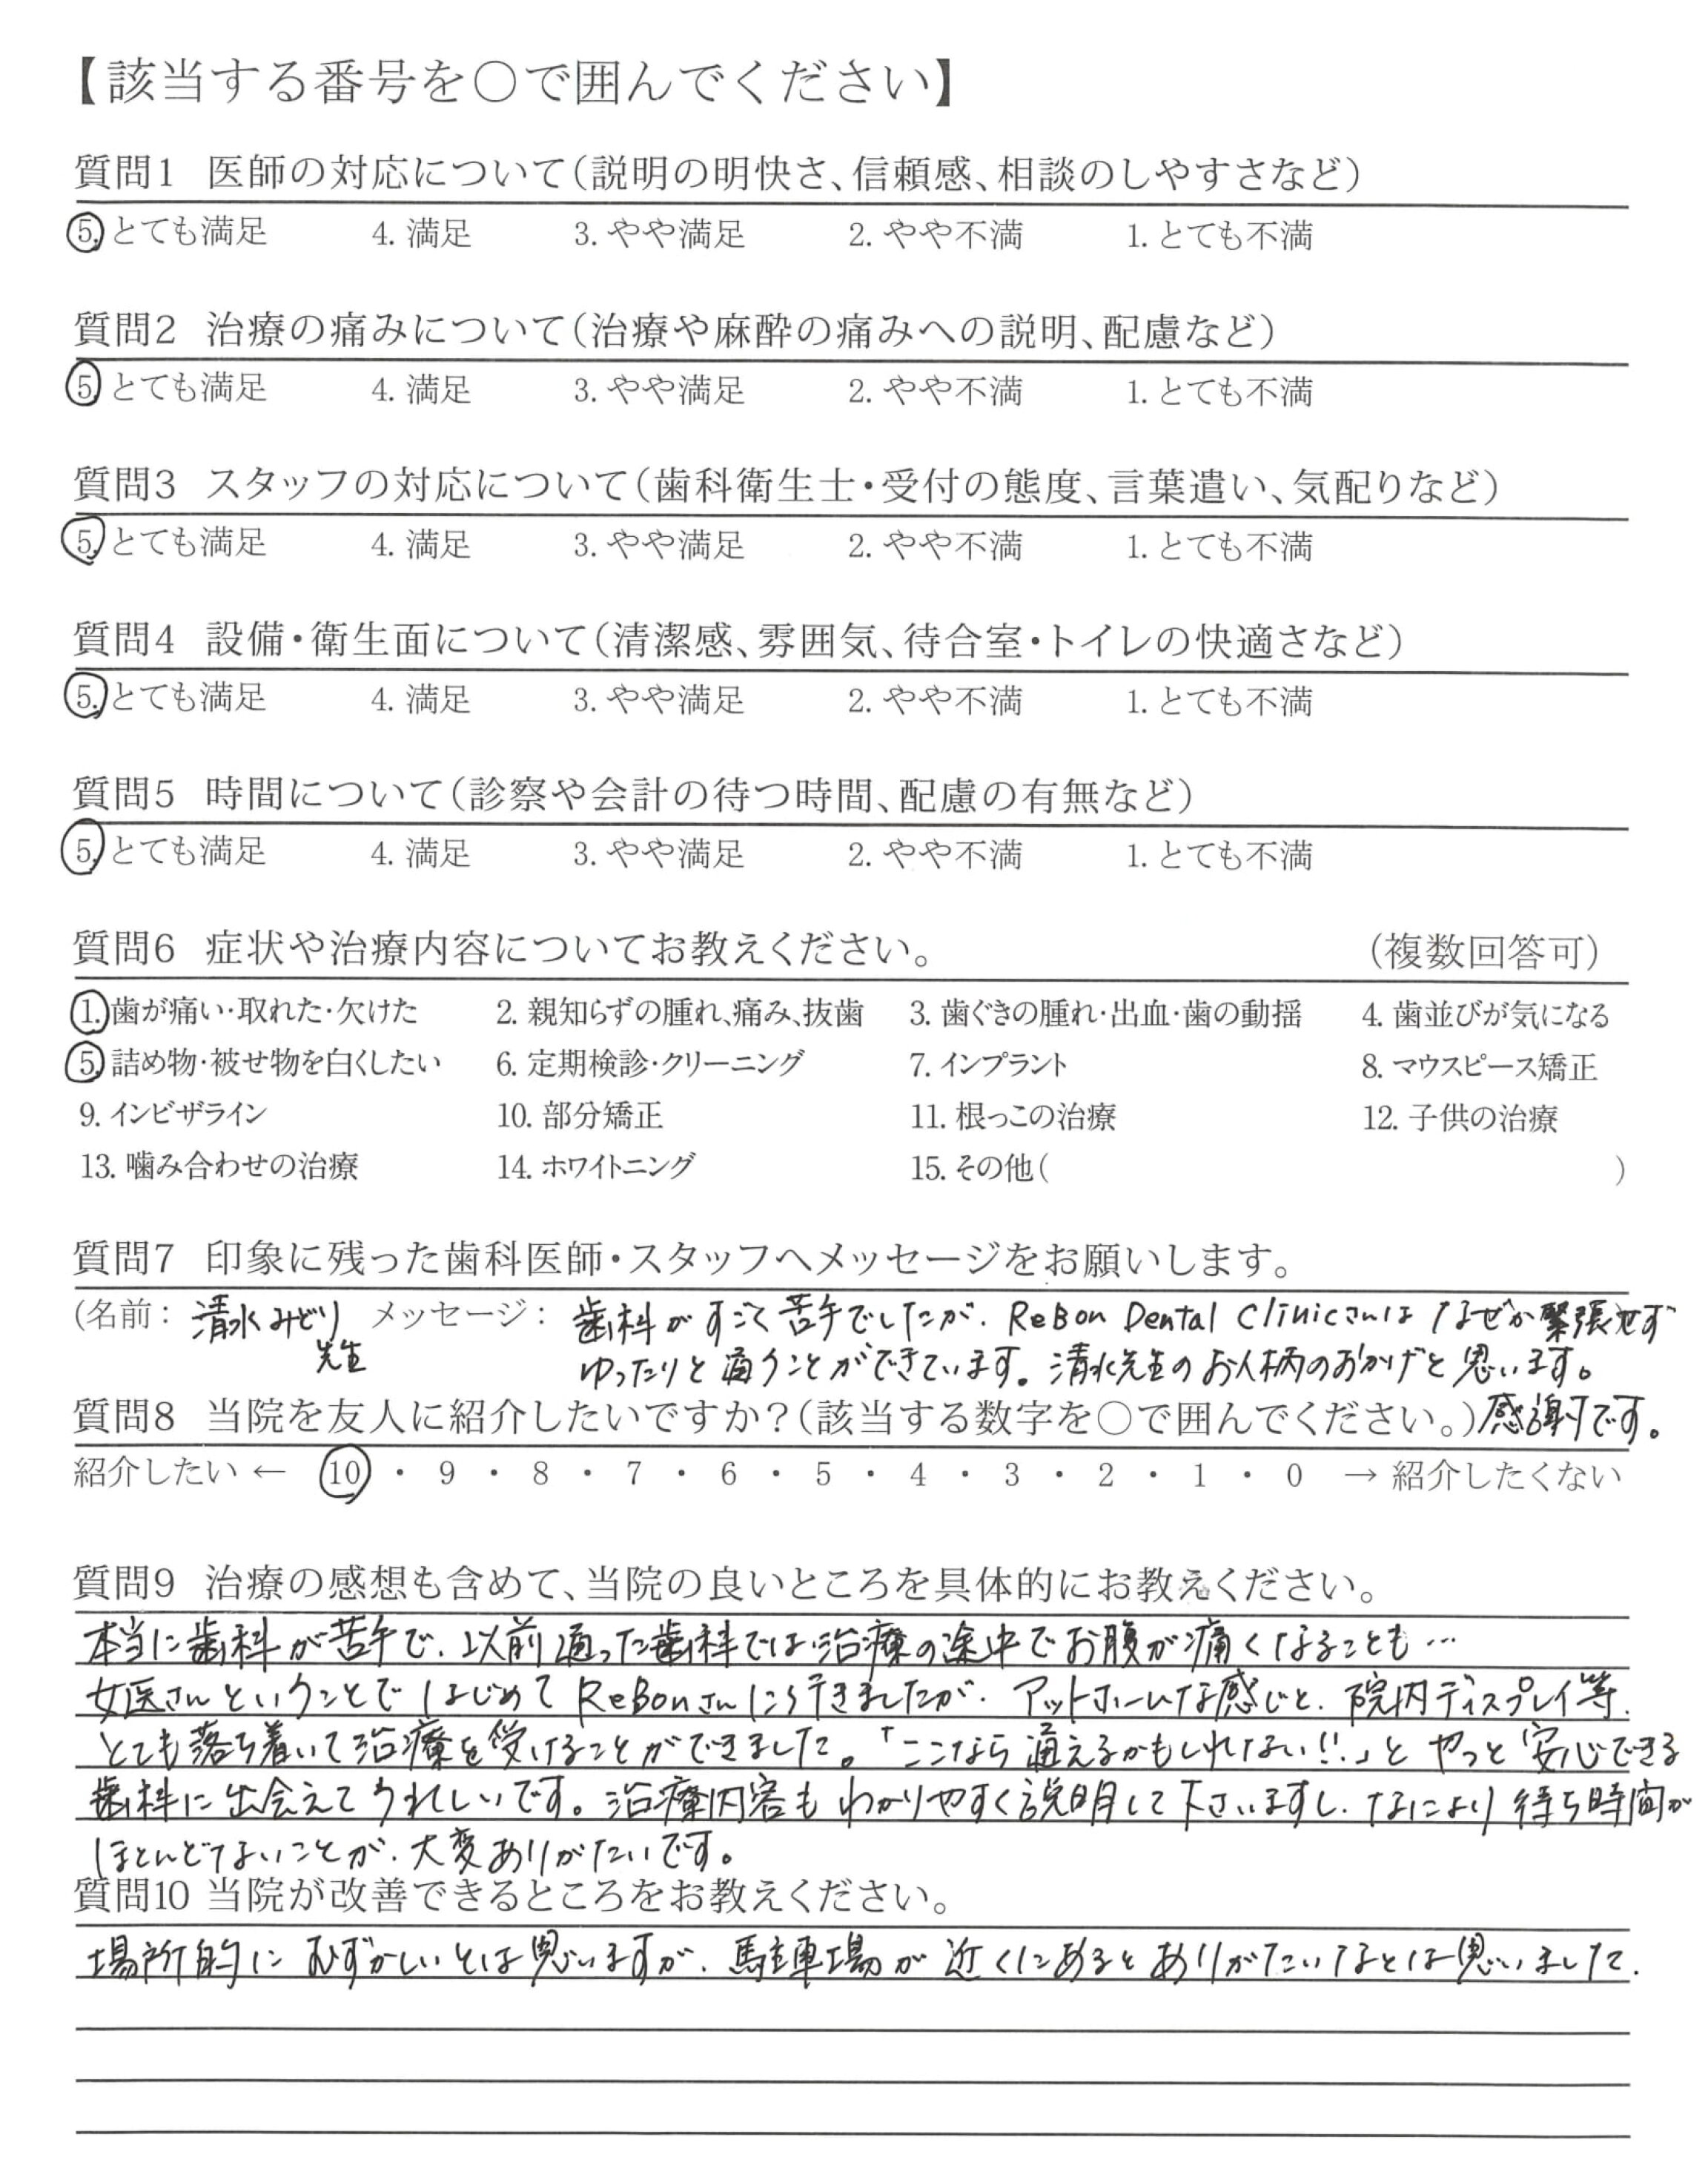 【該当する番号を○で囲んでください】
質問1 医師の対応について(説明の明快さ、信頼感、相談のしやすさなど)
5. とても満足 4. 満足 3. やや満足 2. やや不満 1. とても不満
質問2 治療の痛みについて(治療や麻酔の痛みへの説明、配慮など)
5. とても満足 4. 満足 3. やや満足 2. やや不満 1. とても不満
質問3 スタッフの対応について(歯科衛生士・受付の態度、言葉遣い、気配りなど)
5. とても満足 4. 満足 3. やや満足 2. やや不満 1. とても不満
質問4 設備・衛生面について(清潔感、雰囲気、待合室・トイレの快適さなど)
5. とても満足 4. 満足 3. やや満足 2. やや不満 1. とても不満
質問5 時間について(診察や会計の待つ時間、配慮の有無など)
5. とても満足 4. 満足 3. やや満足 2. やや不満 1. とても不満
質問6 症状や治療内容についてお教えください。 (複数回答可)
1. 歯が痛い・取れた・欠けた 2. 親知らずの腫れ、痛み、抜歯 3. 歯ぐきの腫れ・出血・歯の動揺 4. 歯並びが気になる
5. 詰め物・被せ物を白くしたい 6. 定期検診・クリーニング 7. インプラント 8. マウスピース矯正
9. インビザライン 10. 部分矯正 11. 根っこの治療 12. 子供の治療
13. 噛み合わせの治療 14. ホワイトニング 15. その他( )
質問7 印象に残った歯科医師・スタッフへメッセージをお願いします。
(名前: 清水みどり先生 メッセージ: 歯科がすごく苦手でしたが、ReBon Dental Clinicさんはなぜか緊張せず
ゆったりと通うことができています。清水先生のお人柄のおかげと思います。
感謝です。
質問8 当院を友人に紹介したいですか?(該当する数字を○で囲んでください。)
紹介したい ← 10 ・ 9 ・ 8 ・ 7 ・ 6 ・ 5 ・ 4 ・ 3 ・ 2 ・ 1 ・ 0 → 紹介したくない
質問9 治療の感想も含めて、当院の良いところを具体的にお教えください。
本当に歯科が苦手で、以前通った歯科では治療の途中でお腹が痛くなることも…
女医さんということではじめてReBonさんに行きましたが、アットホームな感じと、院内ディスプレイ等、
とても落ち着いて治療を受けることができました。「ここなら通えるかもしれない!!」とやっと安心できる
歯科に出会えてうれしいです。治療内容もわかりやすく説明して下さいますし、なにより待ち時間が
ほとんどないことが、大変ありがたいです。
質問10 当院が改善できるところをお教えください。
場所的にむずかしいとは思いますが、駐車場が近くにあるとありがたいなとは思いました。